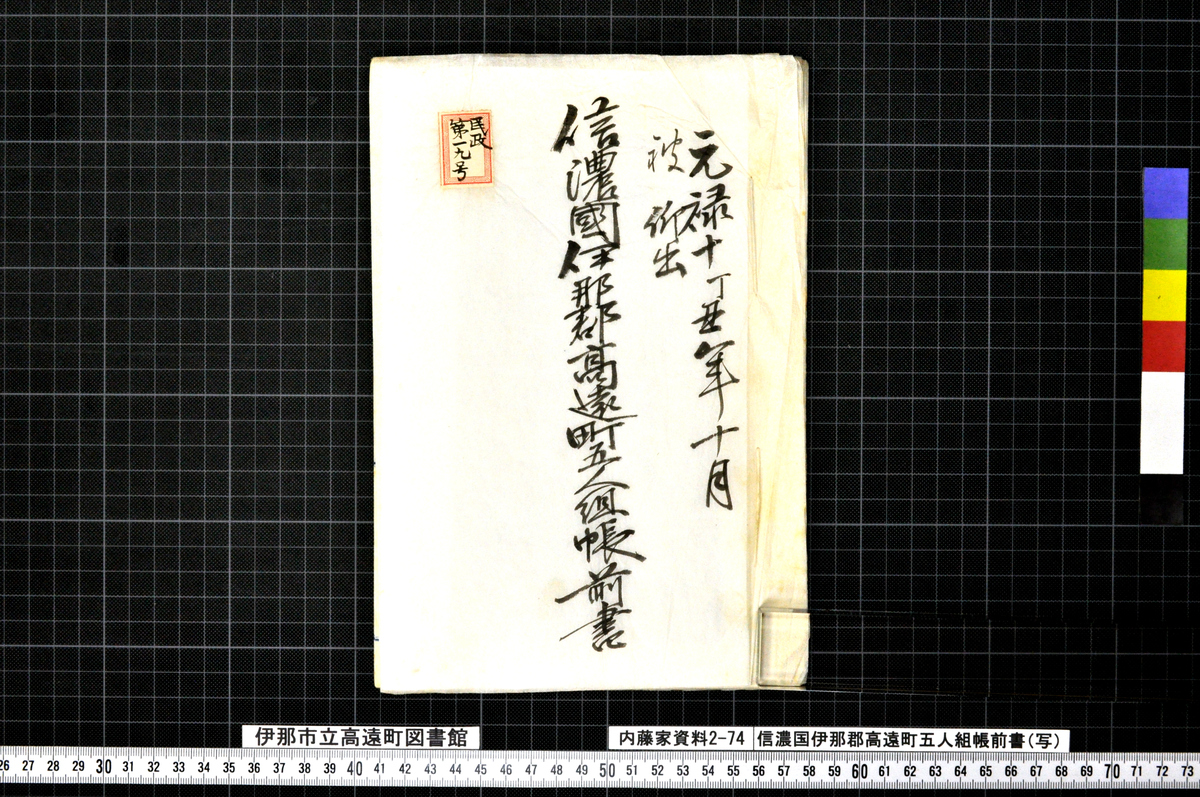 元禄十丁丑年十月
被 仰出
信濃國伊那郡高遠町五人組帳前書
民政
第一九号
伊那市立高遠町図書館
内藤家資料2-74
信濃国伊那郡高遠町五人組帳前書(写)
26 27 28 29 30 31 32 33 34 35 36 37 38 39 40 41 42 43 44 45 46 47 48 49 50 51 52 53 54 55 56 57 58 59 60 61 62 63 64 65 66 67 68 69 70 71 72 73